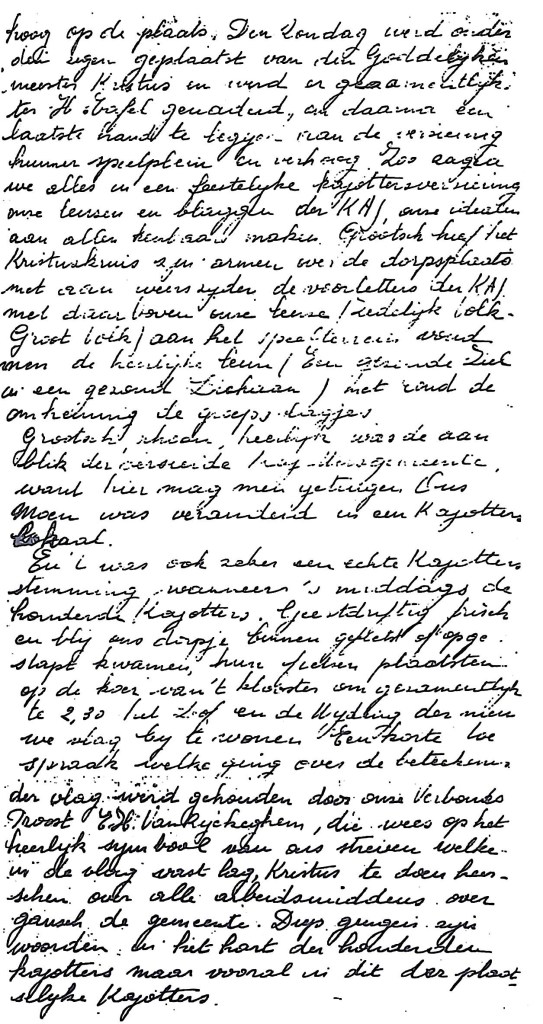 hoog op de plaats. Den Zondag werd onder
den zegen geplaatst van den Goddelijken
meester Kristus en werd er gezamentlijk
ter H. Tafel genaderd, om daarna een
laatste hand te leggen aan de versiering
hunner speelplein en verhoog. Zoo zagen
we alles in een feestelijke kajottersversiering
onze leuzen en vlaggen der KAJ, onze idealen
aan allen kenbaar maken. Grootsch hief het
Kristuskruis zijn armen over de dorpsplaats
met aan weerszijden de voorletters der KAJ
met daarboven onze leuze (Zedelijk volk-
Groot volk) aan het speelterrein vond
men de heerlijke leun (Een gezonde Ziel
in een gezond Lichaam) met rond de
omheining de groepsvlagjes
Grootsch schoon, heerlijk was de aan
blik der versierde kajottersgemeente,
want hier mag men getuigen Ons
Moen was veranderd in een Kajotters
lokaal.
En 't was ook zeker een echte Kajotters
stemming wanneer 's middags de
honderde Kajotters. Geestdriftig frisch
en blij ons dorpje binnen gefietst of opge
stapt kwamen, hun fietsen plaatsten
op de koer van 't klooster om gezamentlijk
te 2,30 het Lof en de Wijding der nieu
we vlag bij te wonen. Een korte toe
spraak welke ging over de beteekenis
der vlag werd gehouden door onze Verbonds
Proost E.H. Van Ryckeghem, die wees op het
heerlijk symbool van ons streven welke
in de vlag vast lag, Kristus te doen heer-
schen over alle arbeidsmiddens over
gansch de gemeente. Diep gingen zijn
woorden in het hart der honderden
kajotters maar vooral in dit der plaat
selijke Kajotters.